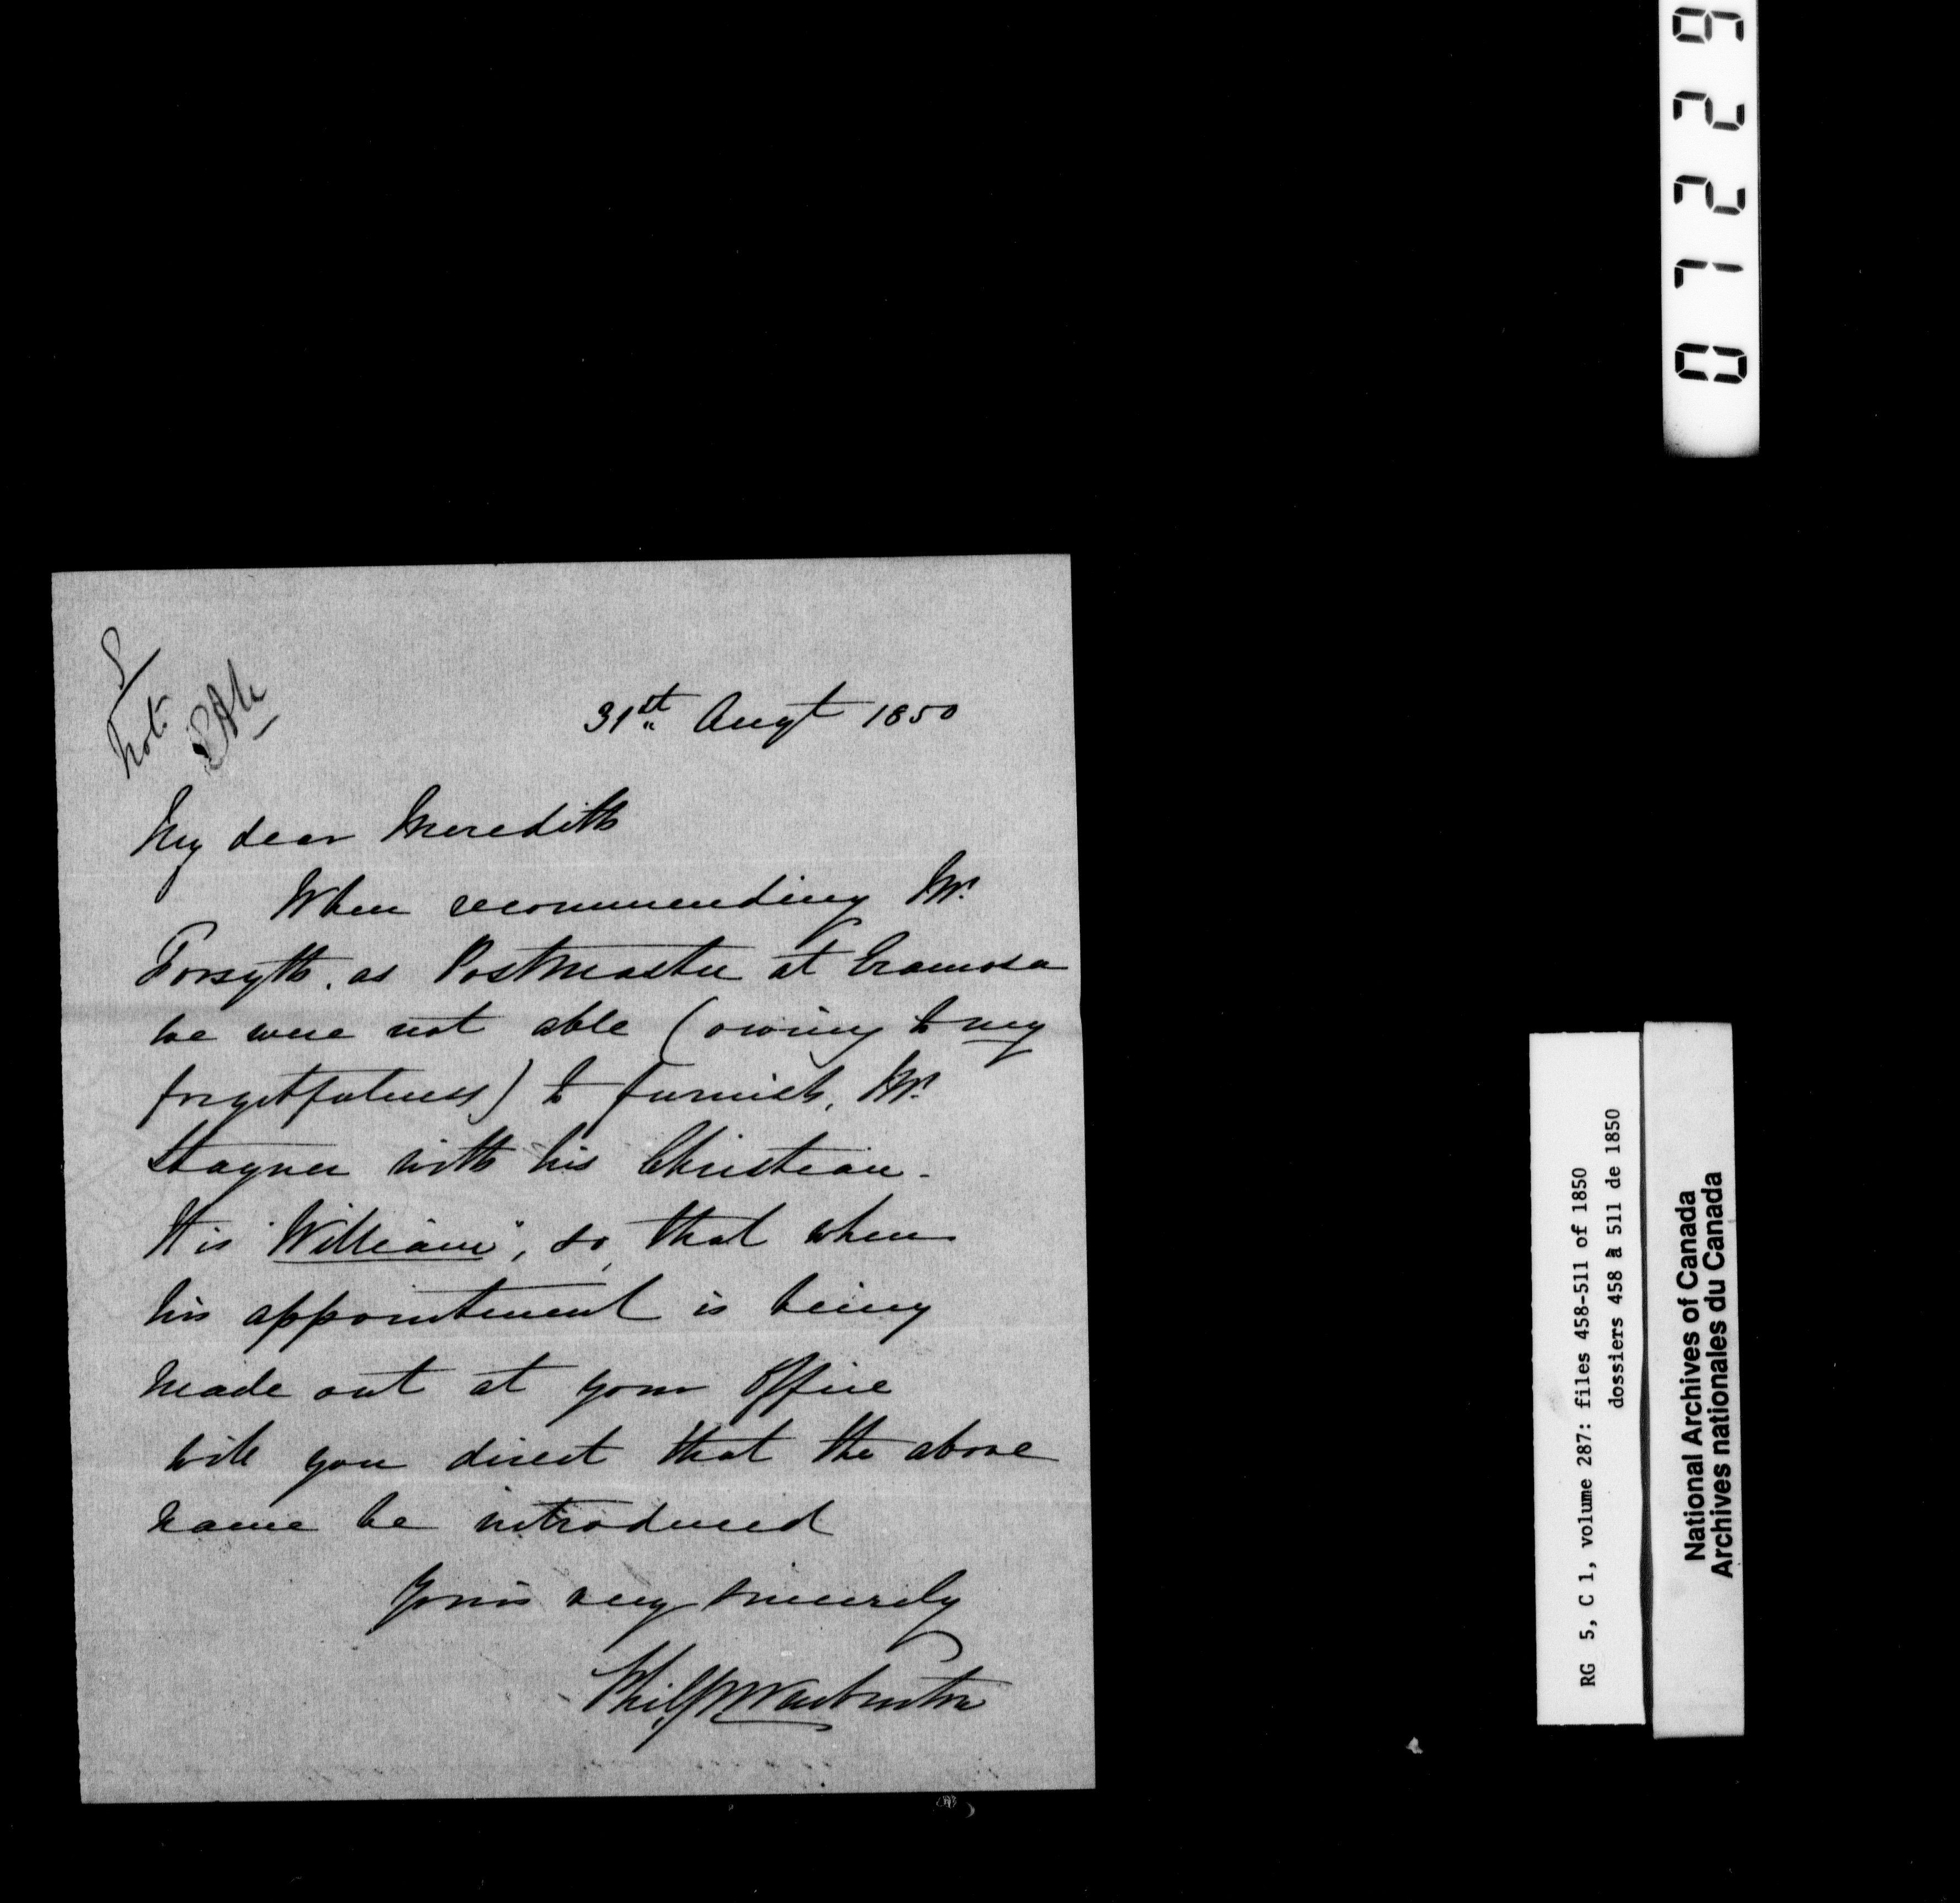 07229
31st Augt 1850
My dear Meredith
When recommending Mr.
Forsyth. as Postmaster at Eramosa
we were not able (owing to my
forgetfulness) to furnish, Mr.
Stayner with his Christian -
It is "William", so, that when
his appointment is being
made out at your Office
will you direct that the above
name be introduced
Yours very sincerely
Warburton
RG 5, C 1, volume 287: files 458-511 of 1850
dossiers 458 à 511 de 1850
National Archives of Canada
Archives nationales du Canada